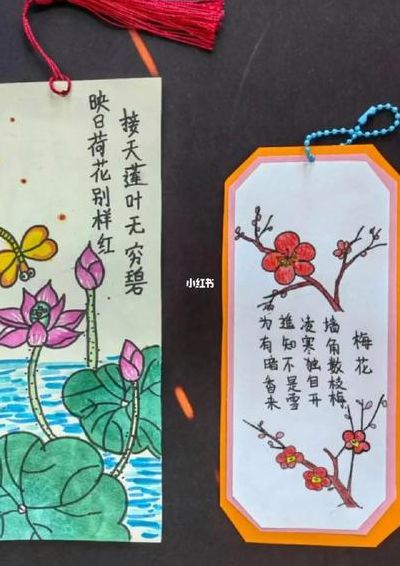 接天莲叶无穷碧
映日荷花别样红
小红书
梅花
墙角数枝梅
凌寒独自开
遥知不是雪
为有暗香来